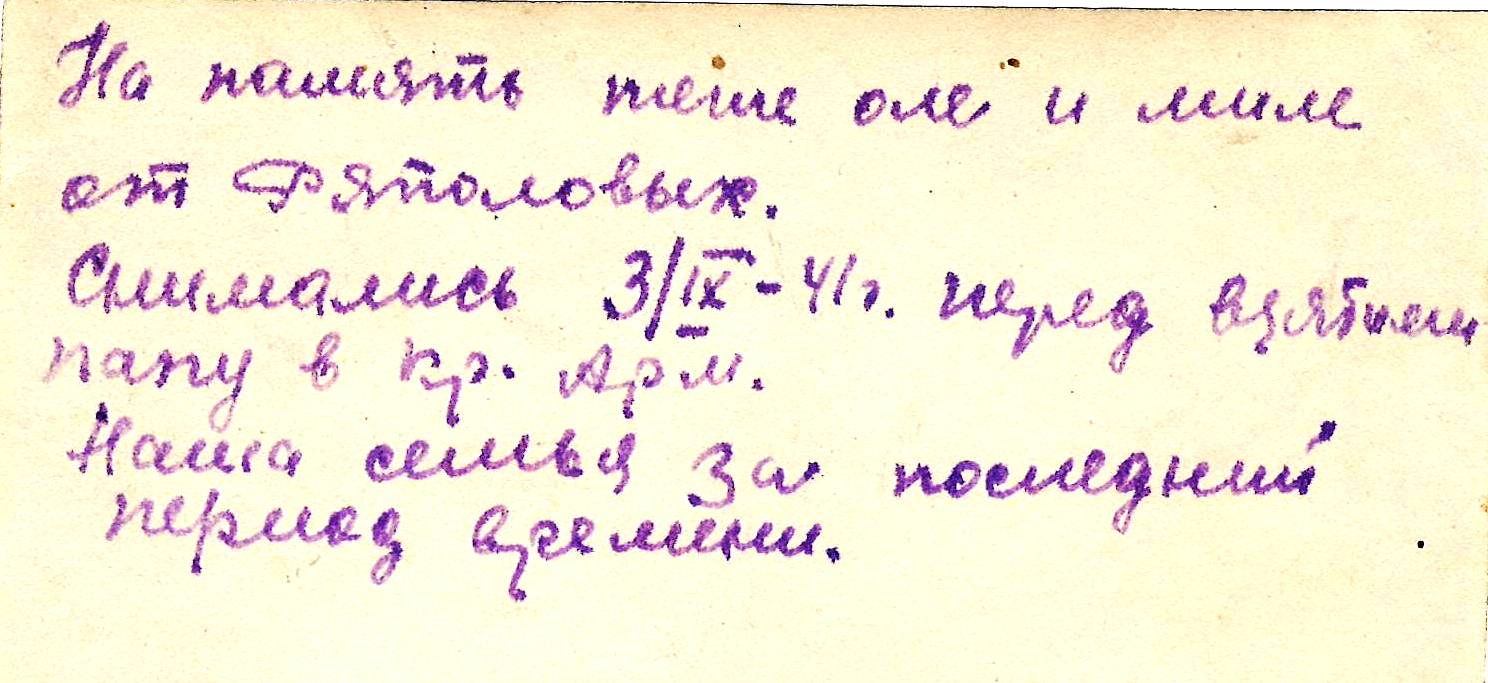 На память тете оле и миле
от Ряполовых.
Снимались 3/IX-41г. перед взятием
папу в кр. Арм.
Наша семья за последний
период времени.